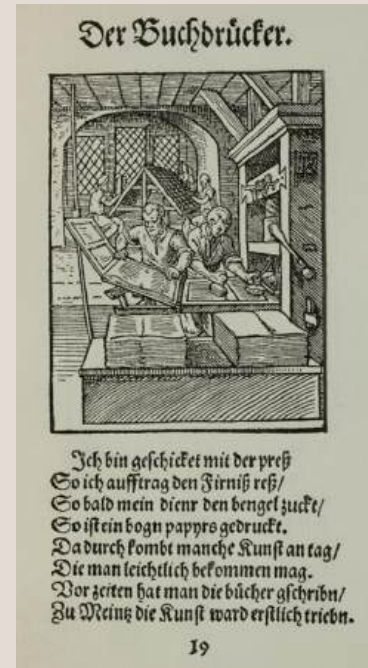 Der Buchdrücker.
Jch bin geschicket mit der preß
So ich aufftrag den Firniß reß/
So bald mein dienr den bengel zuckt/
So ist ein bogn papyrs gedruckt.
Da durch kombt manche Kunst an tag/
Die man leichtlich bekommen mag.
Vor zeiten hat man die bücher gschribn/
Zu Meintz die Kunst ward erstlich triebn.
19